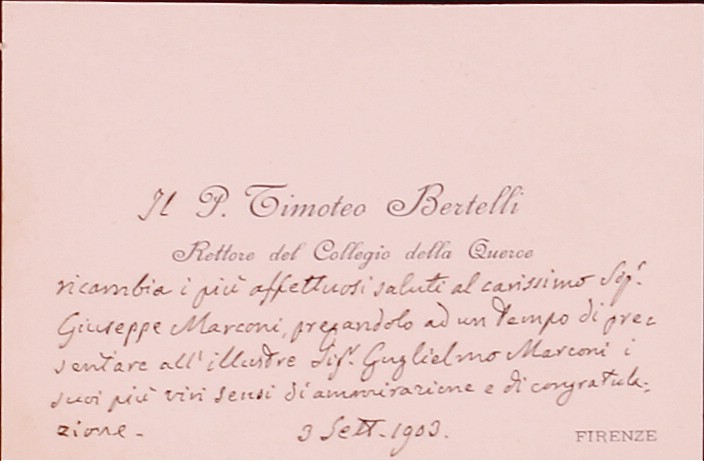 Il P. Timoteo Bertelli
Rettore del Collegio della Querce
ricambia i più affettuosi saluti al carissimo Sigr.
Giuseppe Marconi, pregandolo ad un tempo di pre=
sentare all'illustre Sigr. Guglielmo Marconi i
suoi più vivi sensi di ammirazione e di congratula=
zione.-
3 Sett. 1903.
FIRENZE